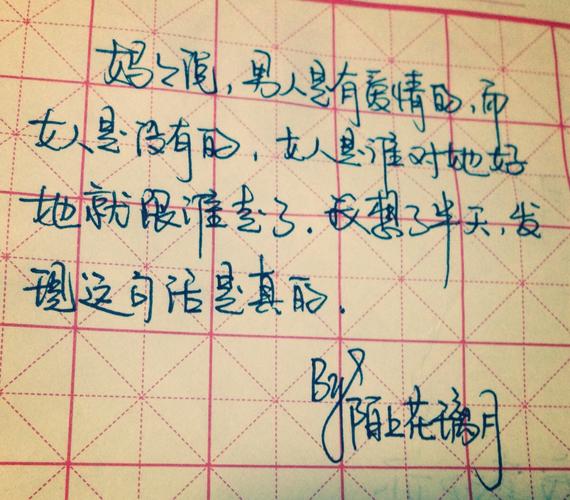 妈々说,男人是有爱情的,而
女人是没有的,女人是谁对她好
她就跟谁走了.我想了半天,发
现这句话是真的.
By 陌上花璃月